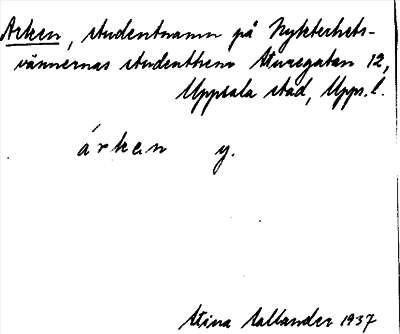 Arken, studentnamn på Nykterhets-
vännernas studenthem Sturegatan 12,
Uppsala stad, Upps. l.
árken y.
Stina Sallander 1937